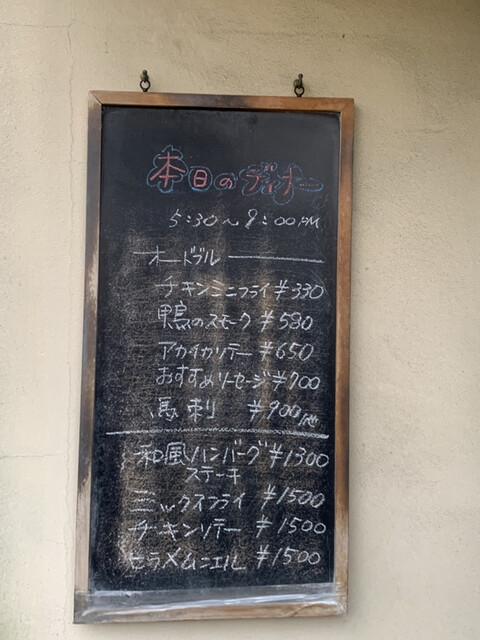 本日のディナー
5:30～9:00PM
オードブル
チキンミニフライ ¥330
鴨のスモーク ¥580
アカイカソテー ¥650
おすすめソーセージ ¥700
馬刺 ¥900
和風ハンバーグ ¥1300
ステーキ
ミックスフライ ¥1500
チキンソテー ¥1500
ヒラメムニエル ¥1500